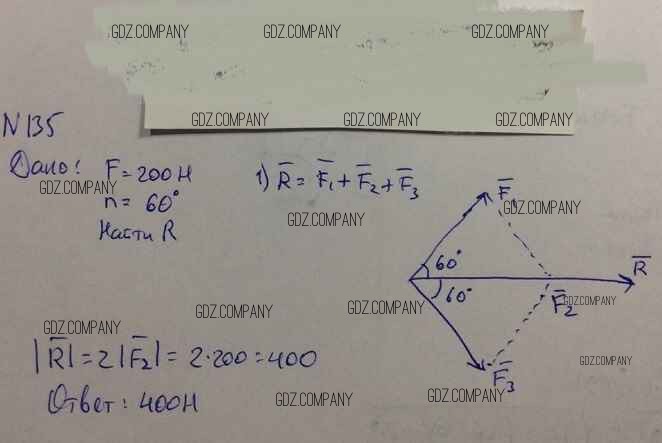 GDZ.COMPANY GDZ.COMPANY GDZ.COMPANY
GDZ.COMPANY GDZ.COMPANY GDZ.COMPANY
N 135
Дано: F = 200 Н
GDZ.COMPANY
n = 60°
Насти R
1) R̅ = F̅₁ + F̅₂ + F̅₃
GDZ.COMPANY
F̅₁
GDZ.COMPANY
60°
R̅
60°
F̅₂
GDZ.COMPANY
GDZ.COMPANY GDZ.COMPANY
GDZ.COMPANY
|R̅| = 2|F̅₂| = 2·200 = 400
GDZ.COMPANY
F̅₃
Ответ: 400Н
GDZ.COMPANY GDZ.COMPANY